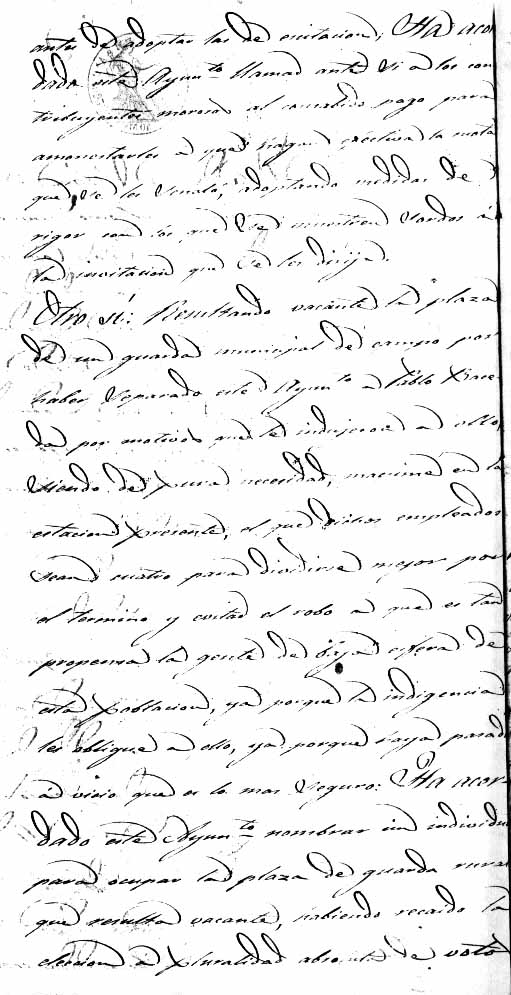 antes de adoptar las de escitacion; Ha acor
dado este Ayunto. llamar ante si a los con
tribuyentes morosos al consabido pago para
amonestarles a que hagan efectiva la nota
que se les señala, adoptando medidas de
rigor con los que se muestren sordos á
la invitacion que se les dirija.
Otro sí: Resultando vacante la plaza
de un guarda municipal de campo por
haber separado este Ayunto. a Pablo
da por motivos que le indujeron a ello,
siendo de pura necesidad, maxime en la
estacion presente, el que dichos empleados
sean cuatro para dividirse mejor por
el termino y evitar el robo a que es tan
propensa la gente de baja esfera de
esta poblacion, ya porque la indigencia
les obligue a ello, ya porque haya pasado
á vicio que es lo mas seguro: Ha acor
dado este Ayunto. nombrar un individuo
para ocupar la plaza de guarda rural
que resulta vacante, habiendo recaido la
eleccion a pluralidad absoluta de votos